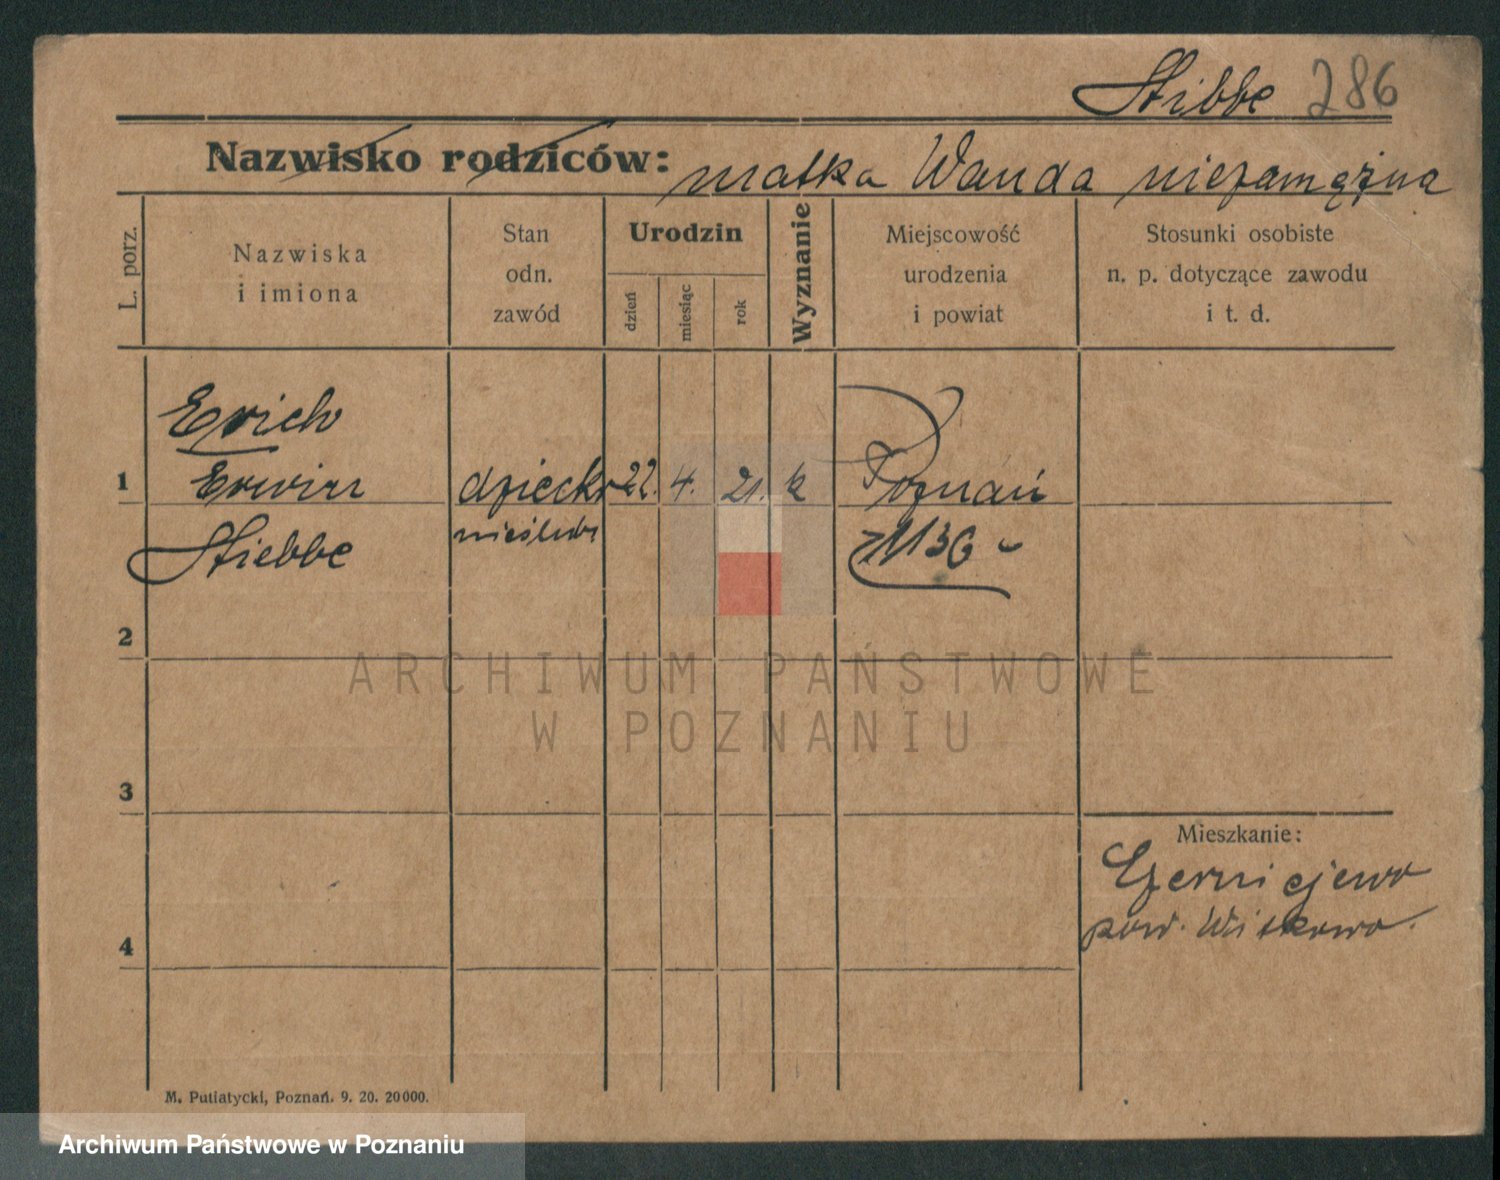 Stibbe 286
Nazwisko rodziców: matka Wanda niezamężna
L. porz.
Nazwiska
i imiona
Stan
odn.
zawód
Urodzin
dzień
miesiąc
rok
Wyznanie
Miejscowość
urodzenia
i powiat
Stosunki osobiste
n. p. dotyczące zawodu
i t. d.
Erich
1 Erwin dziecko 22. 4. 21. k Poznań
Stiebbe nieślubn 1136
2
3
4
Mieszkanie:
Czerniejewo
pow. Witkowo.
M. Putiatycki, Poznań. 9. 20. 20000.
ARCHIWUM PAŃSTWOWE
W POZNANIU
Archiwum Państwowe w Poznaniu